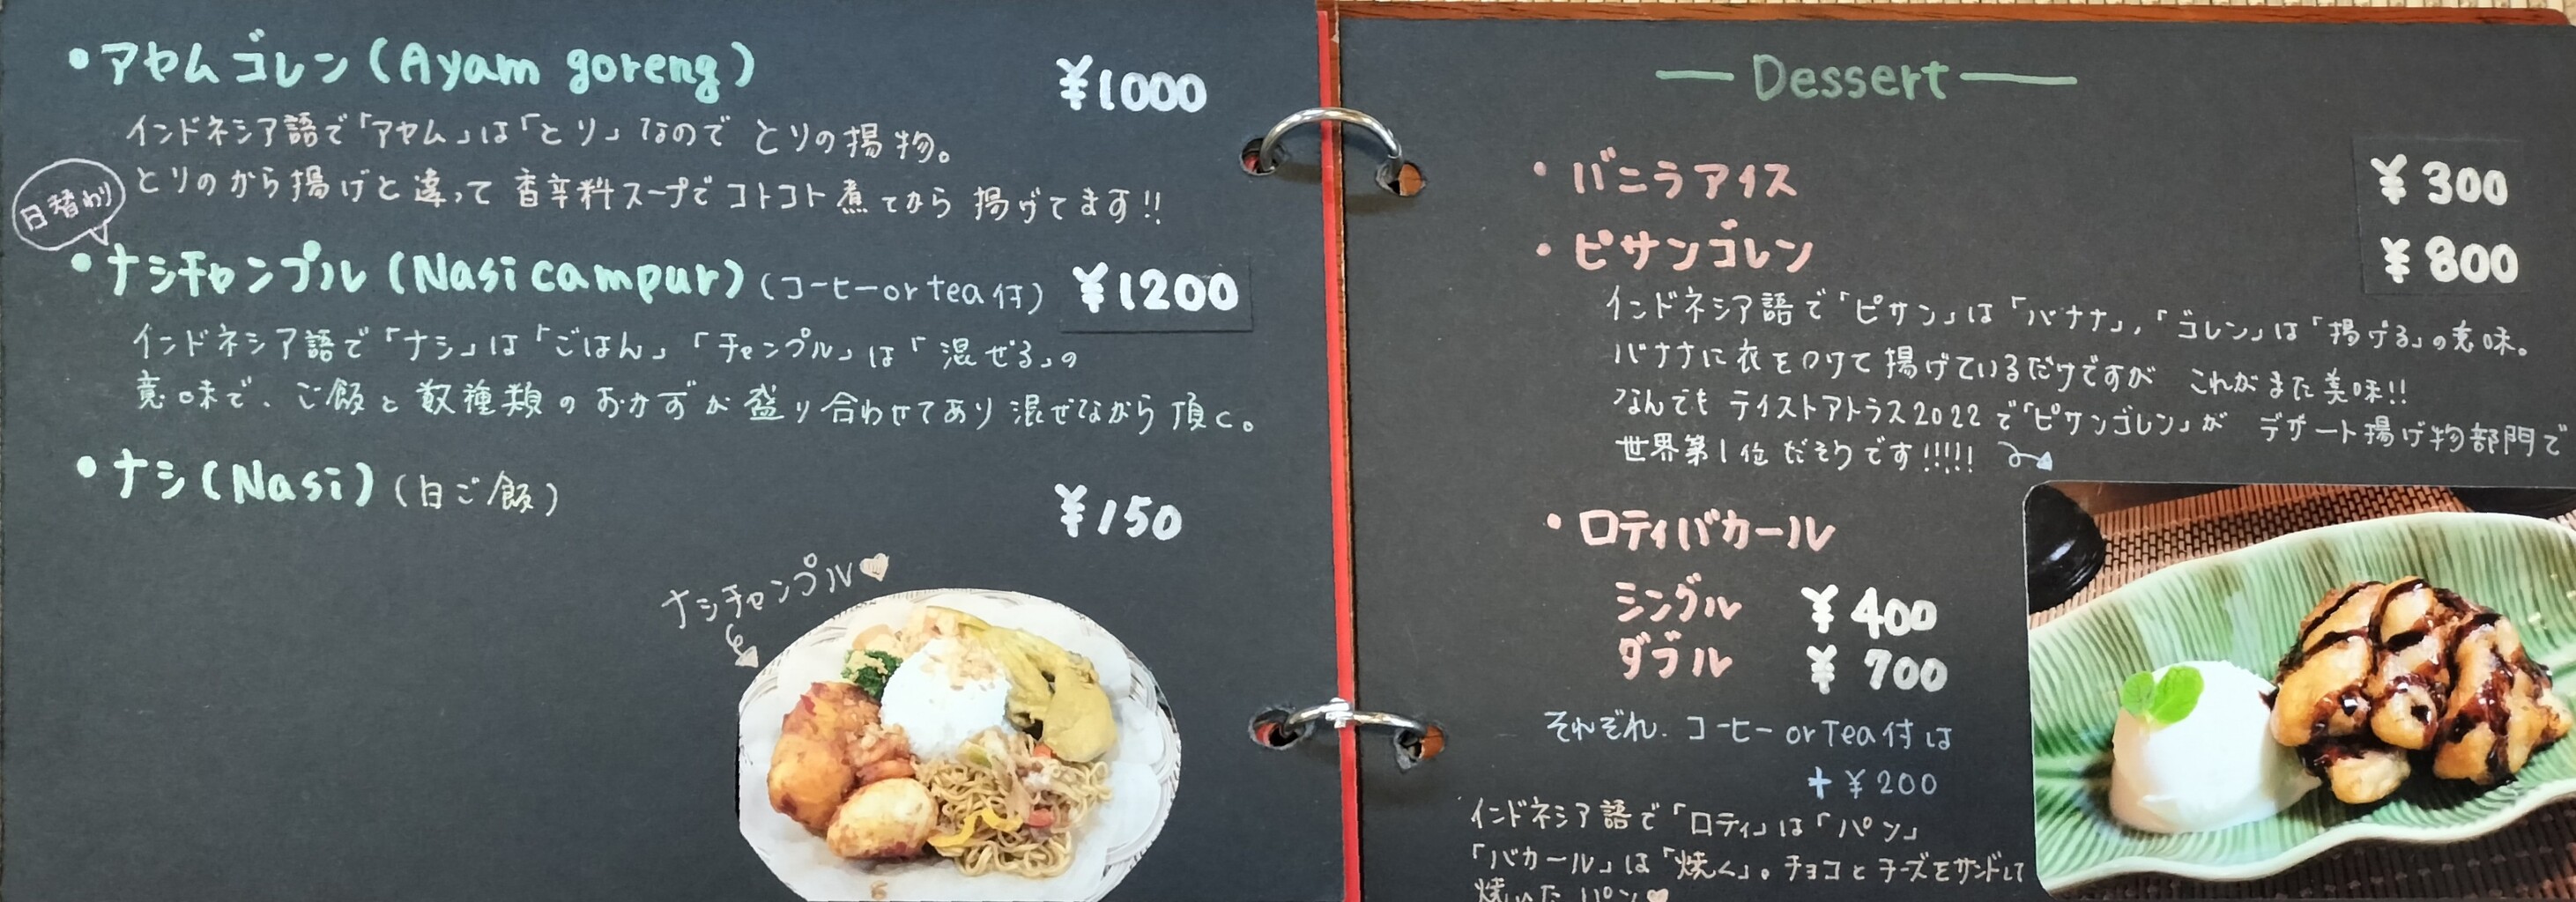 ・アヤムゴレン(Ayam goreng) ¥1000
インドネシア語で「アヤム」は「とり」なので とりの揚物。
とりのから揚げと違って 香辛料スープで コトコト煮てから 揚げてます!!
日替わり
・ナシチャンプル(Nasi campur)(コーヒーor tea付) ¥1200
インドネシア語で「ナシ」は「ごはん」「チャンプル」は「混ぜる」の
意味で、ご飯と数種類のおかずが盛り合わせてあり混ぜながら頂く。
・ナシ(Nasi)(白ご飯) ¥150
ナシチャンプル♥
— Dessert —
・バニラアイス ¥300
・ピサンゴレン ¥800
インドネシア語で「ピサン」は「バナナ」,「ゴレン」は「揚げる」の意味。
バナナに衣をつけて揚げているだけですが これがまた美味!!
なんでも テイストアトラス2022で「ピサンゴレン」が デザート揚げ物部門で
世界第1位だそうです!!!!!
・ロティバカール
シングル ¥400
ダブル ¥700
それぞれ、コーヒー or Tea付は
+¥200
インドネシア語で「ロティ」は「パン」
「バカール」は「焼く」。チョコとチーズをサンドして
焼いたパン♥